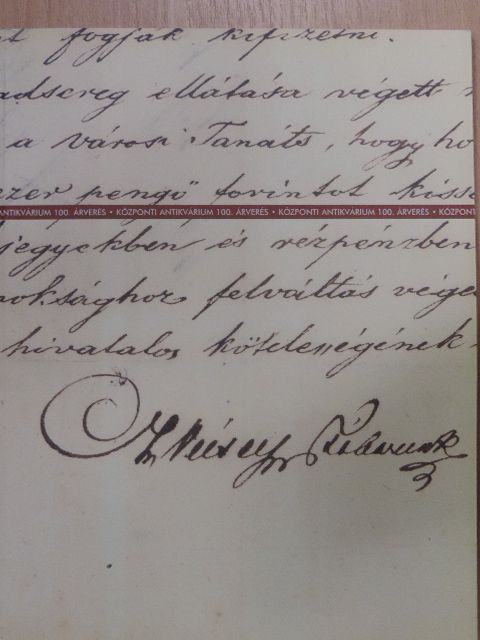 t fogják kifizetni.
adsereg ellátása végett
a városi Tanáts, hogy ho
ezer pengő forintot kösse
ANTIKVÁRIUM 100. ÁRVERÉS • KÖZPONTI ANTIKVÁRIUM 100. ÁRVERÉS • KÖZPONTI ANTIKVÁRIUM 100. ÁRVERÉS • KÖZPONT
jegyekben és rézpénzben
noksághoz felváltás vége
hivatalos kötelességének
Vécsey Tábornok